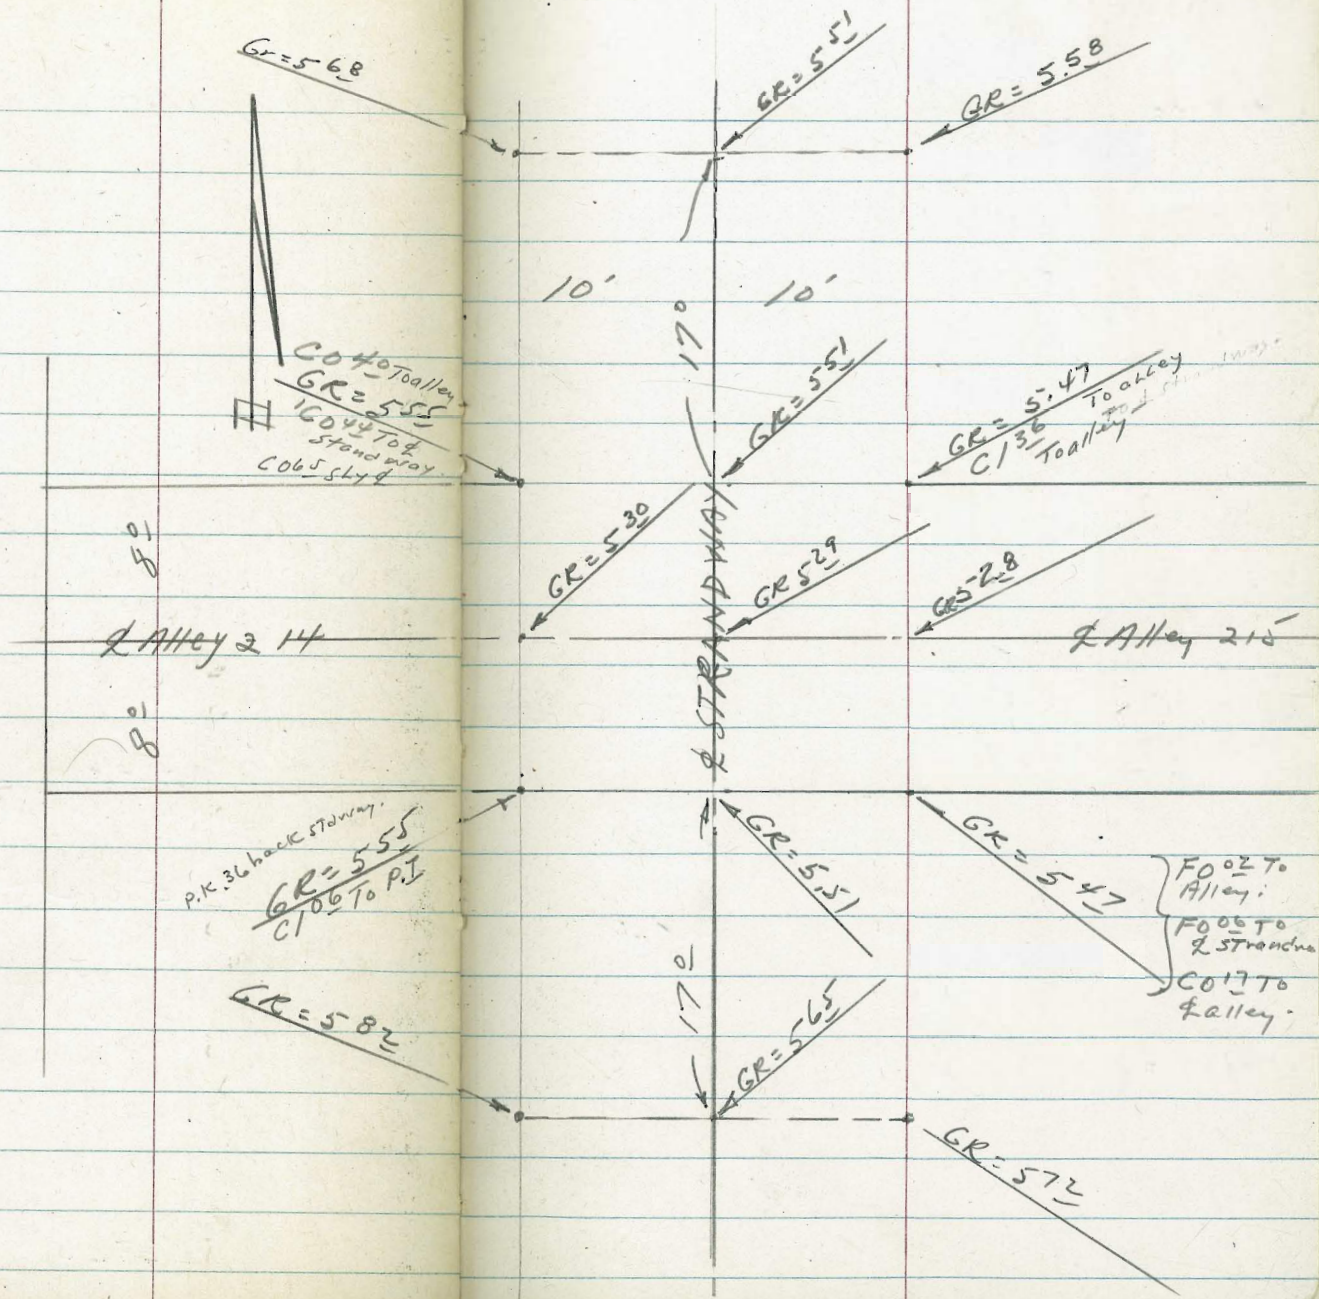 Gr = 5 68
GR = 5 51
GR = 5.58
10'
10'
17 0
C0 40 To alley
GR = 5 55
C0 44 To ℄
Strandway
C0 65 Sly ℄
GR = 5 51
GR = 5.47
To alley
C1 36
To alley
GR = 5 30
GR 5 29
GR 5 28
8 0
℄ STRANDWAY
℄ Alley 214
℄ Alley 215
8 0
P.K. .36 back Stdway.
GR = 5 55
C1 06 To P.I
GR = 5.51
GR = 5 47
F0 02 To
Alley.
F0 06 To
℄ Strandwa
C0 17 To
℄ alley.
17 0
GR = 5 82
GR = 5 65
GR = 5 72